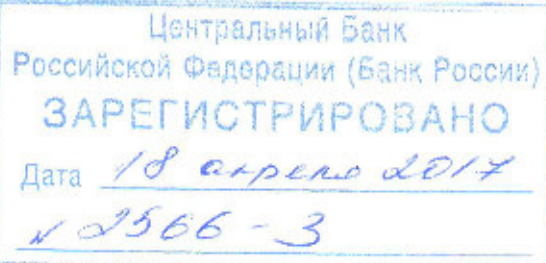 Центральный Банк
Российской Федерации (Банк России)
ЗАРЕГИСТРИРОВАНО
Дата 18 апреля 2017
№ 2566-3